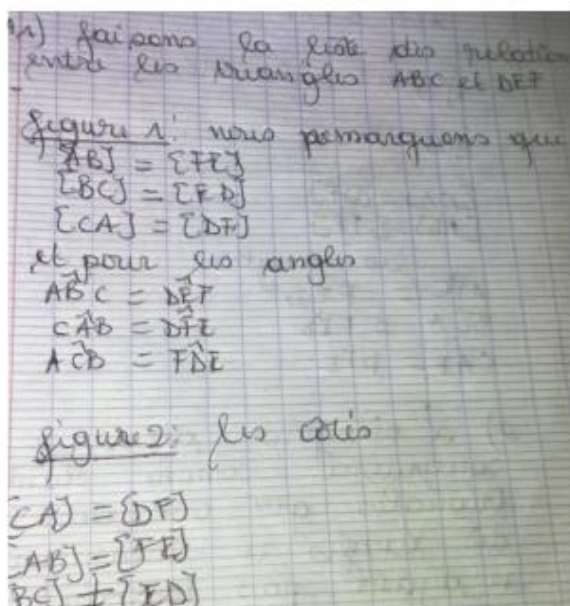 1) faisons la liste des relation
entre les triangles ABC et DEF
figure 1: nous remarquons que
[AB] = [FE]
[BC] = [ED]
[CA] = [DF]
et pour les angles
AB̂C = DÊF
CÂB = DF̂E
AĈB = FD̂E
figure 2: les cotés
[CA] = [DF]
[AB] = [FE]
[BC] ≠ [ED]